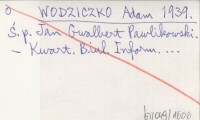 WODZICZKO Adam 1939.
Ś.p. Jan Gwalbert Pawlikowski.
– Kwart. Biul. Inform. ...
/1600